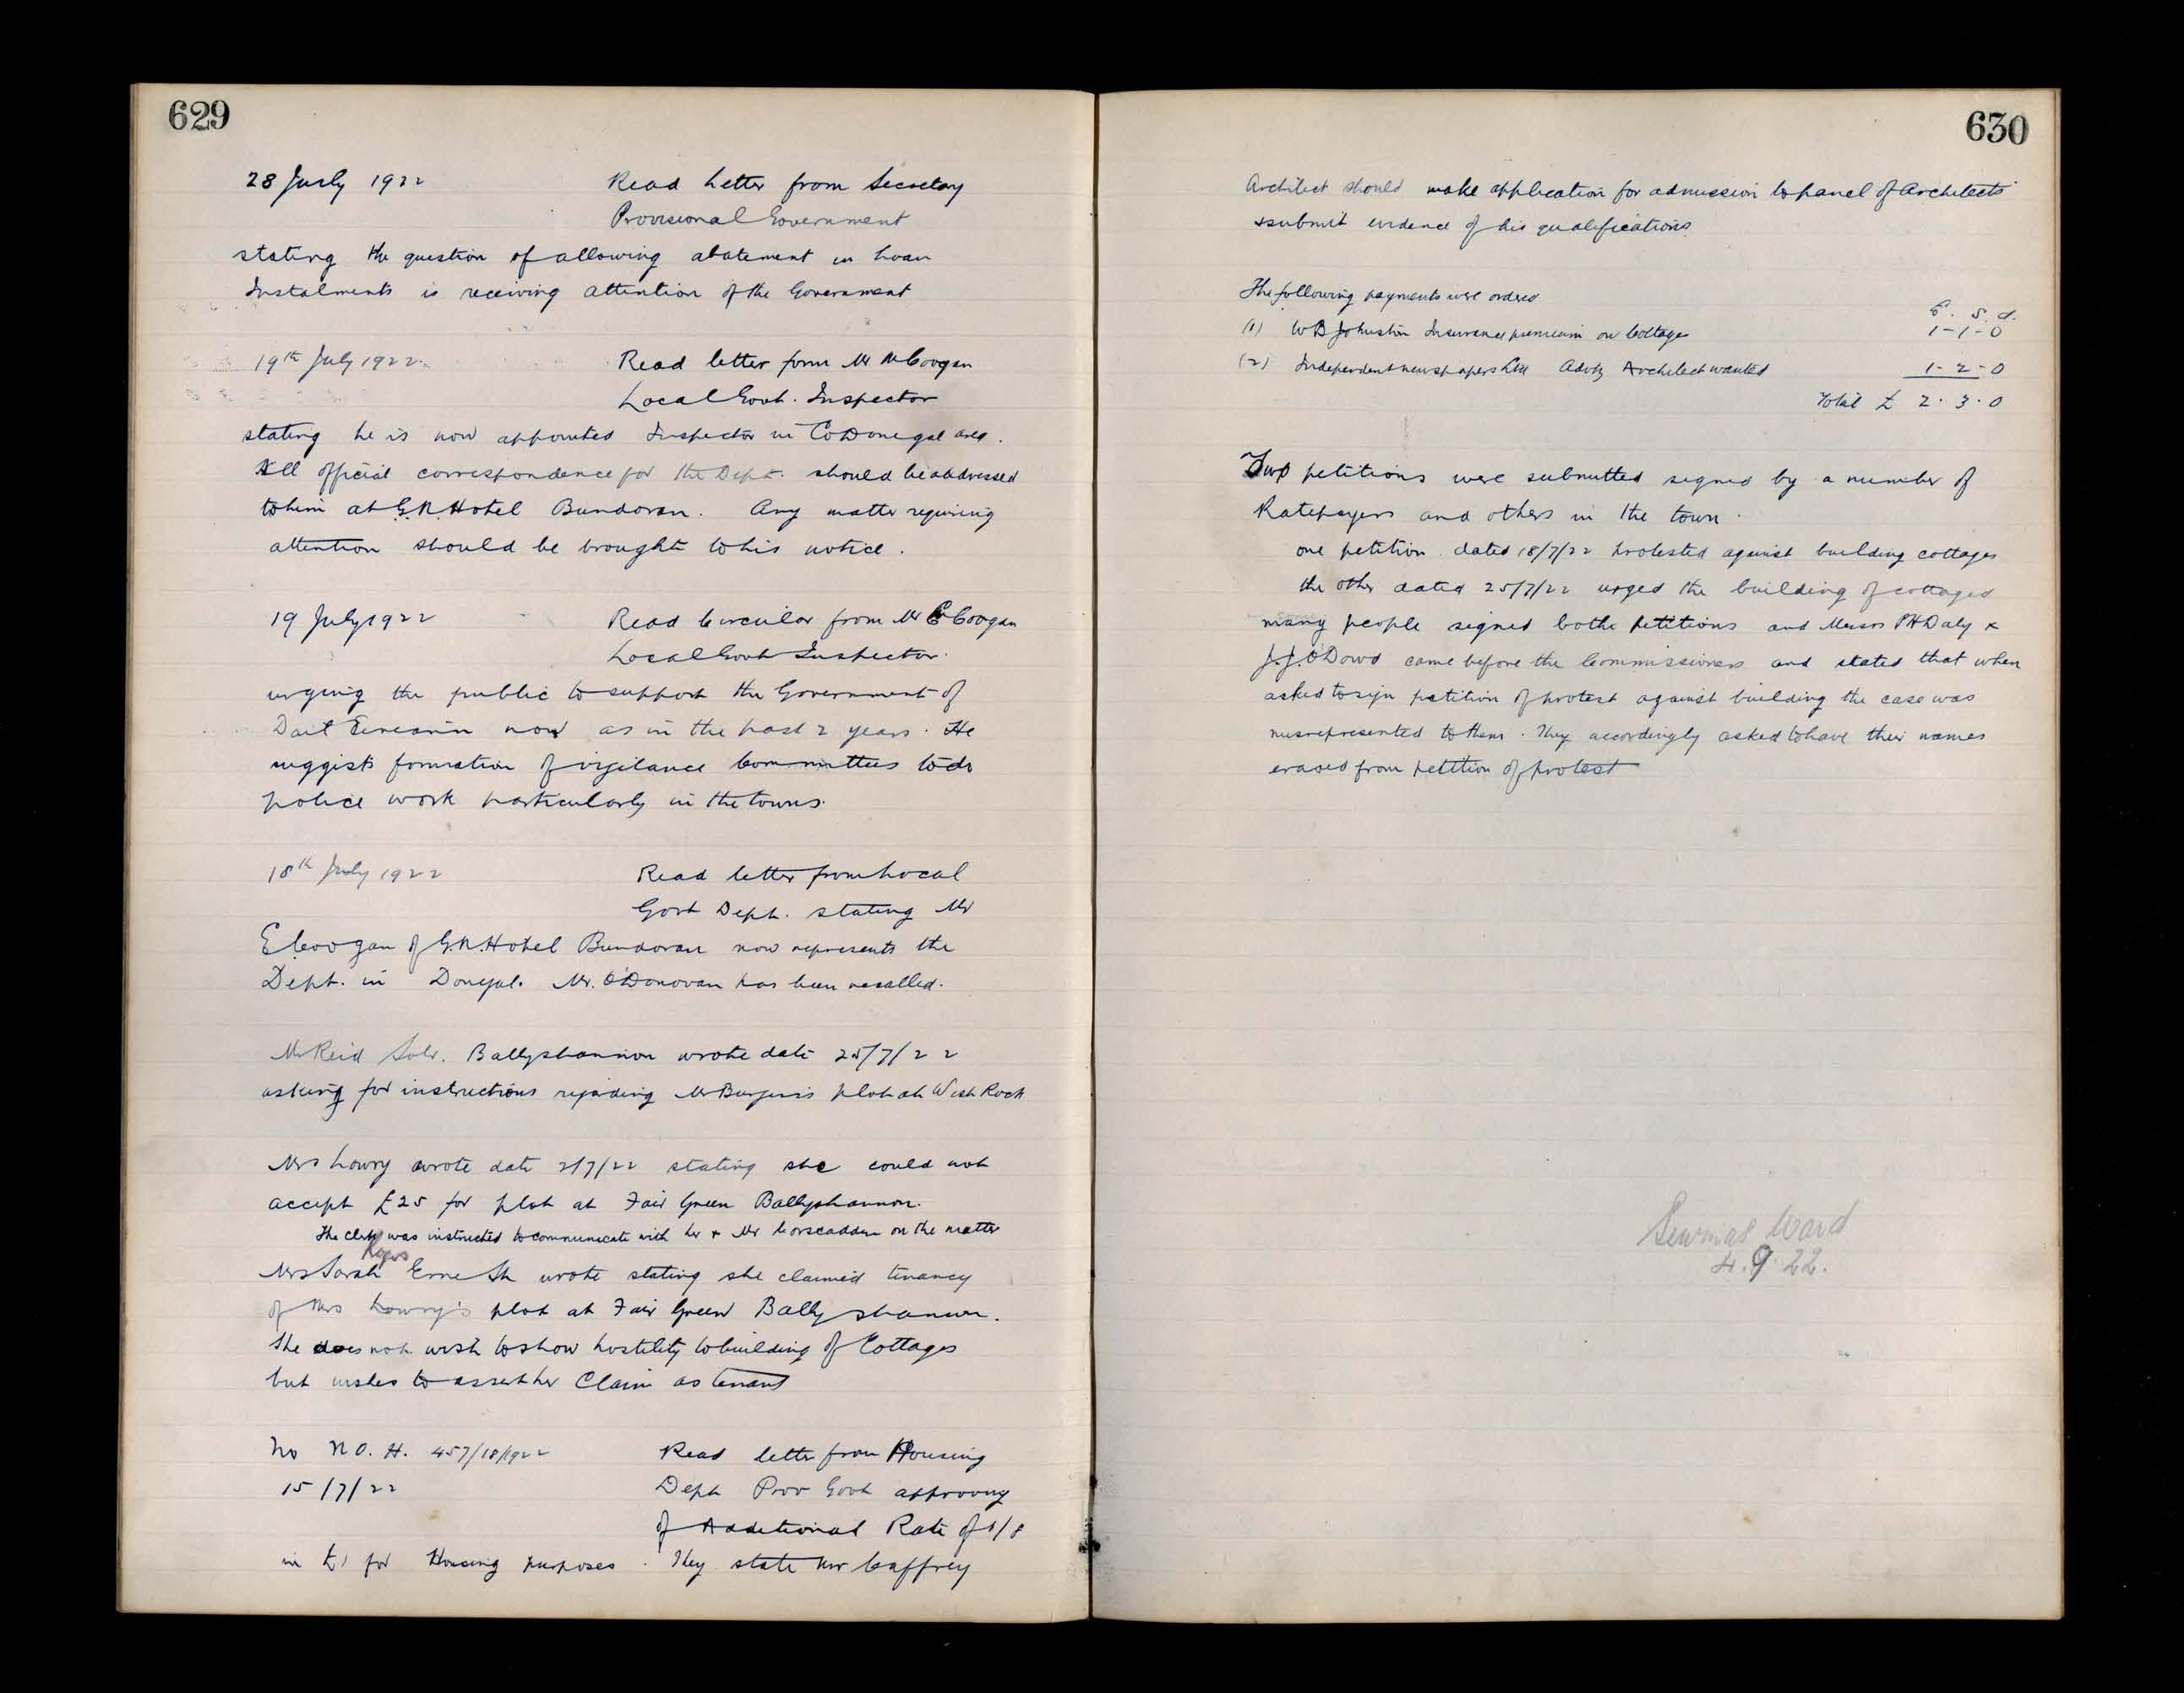 629
28 July 1922 Read Letter from Secretary
Provisional Government
stating the question of allowing abatement in Loan
Instalments is receiving attention of the Government
19th July 1922. Read letter from Mr Coogan
Local Govt. Inspector
stating he is now appointed Inspector in Co Donegal area.
All official correspondence for the Dept. should be addressed
to him at G.N. Hotel Bundoran. Any matter requiring
attention should be brought to his notice.
19 July 1922 Read Circular from Mr E Coogan
Local Govt Inspector.
urging the public to support the Government of
Dail Eireann now as in the past 2 years. He
suggists formation of vigilance Committees to do
police work particularly in the towns.
18th July 1922 Read letter from Local
Govt Dept. stating Mr
E Coogan of G.N. Hotel Bundoran now represents the
Dept. in Donegal. Mr. O'Donovan has been recalled.
Mr Reid Solr. Ballyshannon wrote date 25/7/22
asking for instructions regarding Mr Burgess's plot at West Rock
Mrs Lowry wrote date 2/7/22 stating she could not
accept £25 for plot at Fair Green Ballyshannon.
The clerk was instructed to communicate with her & Mr Corscadden on the matter
Mrs Sarah Rogers Erne St wrote stating she claimed tenancy
of Mrs Lowry's plot at Fair Green Ballyshannon.
She does not wish to show hostility to building of Cottages
but wishes to assert her Claim as tenant
No N O. H. 457/18/1922 Read letter from Housing
15/7/22 Dept Prov Govt approving
of Additional Rate of 1/8
in £1 for Housing purposes. They state Mr Caffrey
630
Architect should make application for admission to panel of Architects
& submit evidence of his qualifications.
The following payments were ordered
£. S. d.
(1) W B Johnston Insurance premium on Cottages 1-1-0
(2) Independent newspapers Ltd Advtg Architect wanted 1-2-0
Total £ 2. 3. 0
Two petitions were submitted signed by a number of
Ratepayers and others in the town.
one petition dated 18/7/22 protested against building cottages
the other dated 25/7/22 urged the building of cottages
many people signed bothe petitions and Messrs P H Daly &
J. J. O'Dowd came before the Commissioners and stated that when
asked to sign petition of protest against building the case was
misrepresented to them. They accordingly asked to have their names
erased from petition of protest
Seumas Ward
4.9.22.